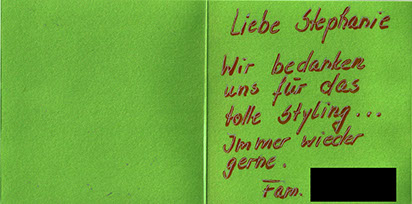 Liebe Stephanie
Wir bedanken
uns für das
tolle Styling...
Immer wieder
gerne.
Fam.